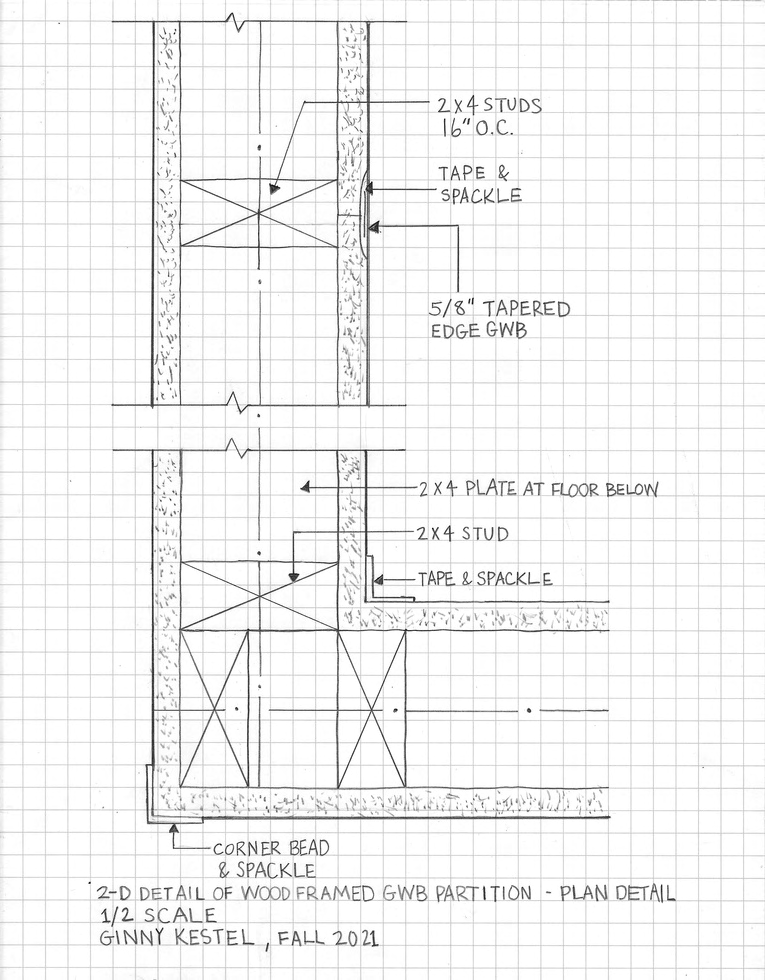 2X4 STUDS
16" O.C.
TAPE &
SPACKLE
5/8" TAPERED
EDGE GWB
2X4 PLATE AT FLOOR BELOW
2X4 STUD
TAPE & SPACKLE
CORNER BEAD
& SPACKLE
2-D DETAIL OF WOOD FRAMED GWB PARTITION - PLAN DETAIL
1/2 SCALE
GINNY KESTEL, FALL 2021